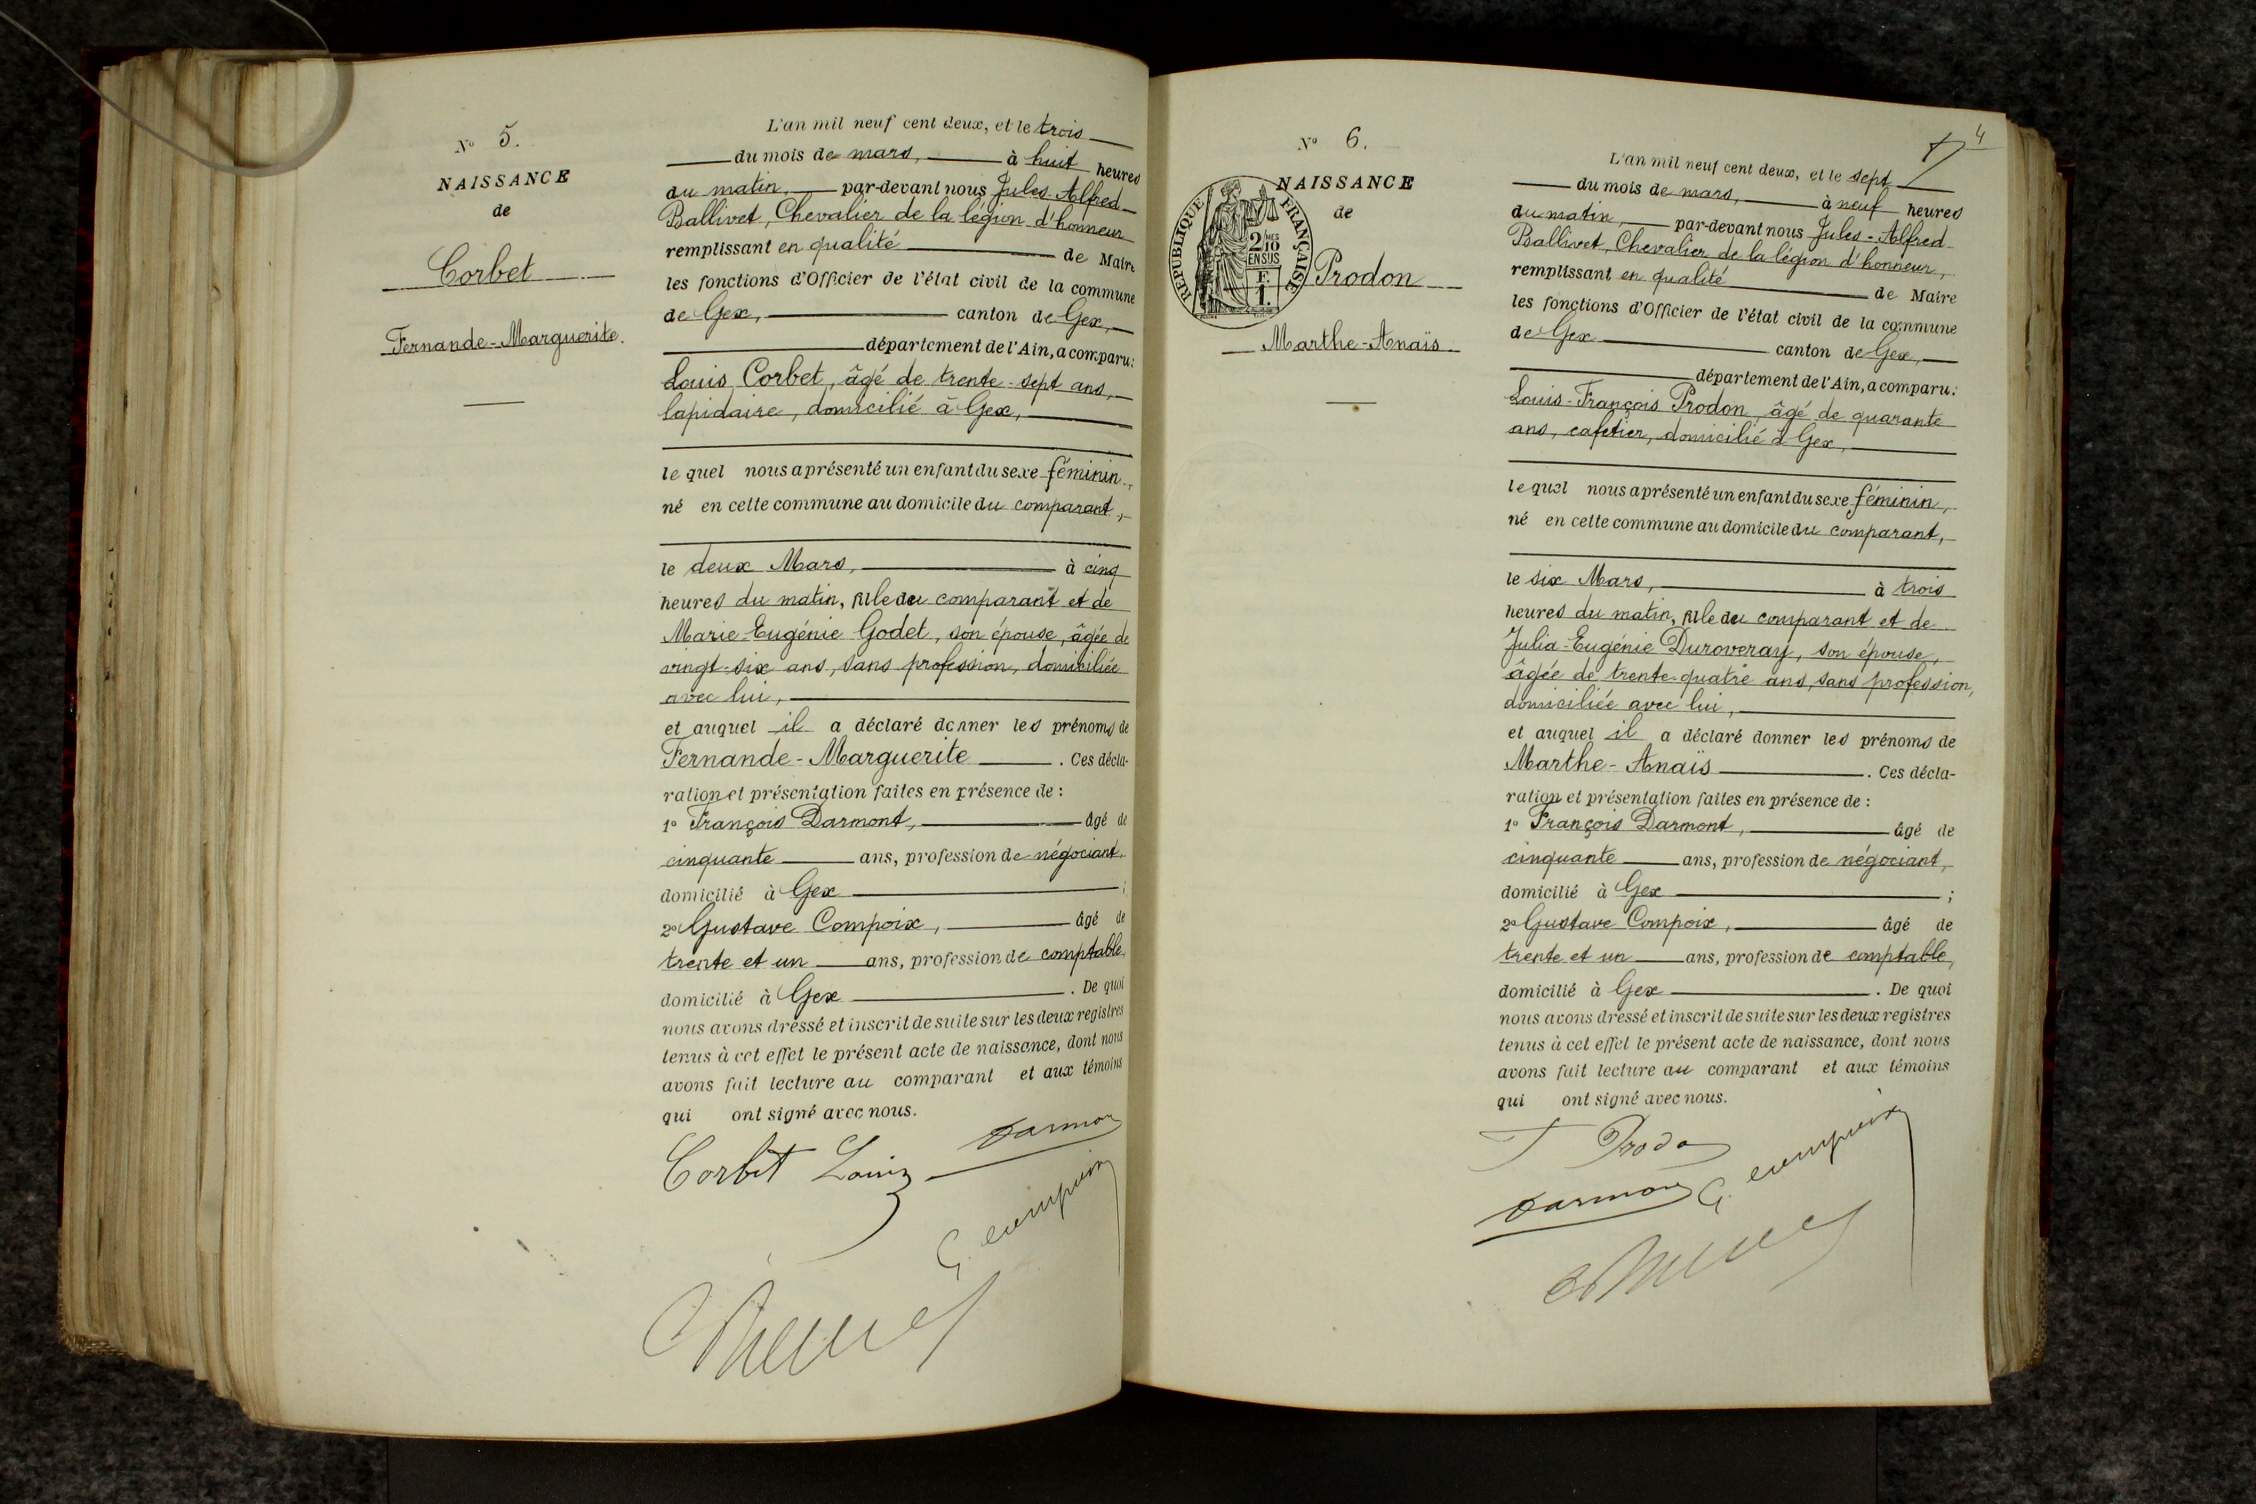 N° 5.
NAISSANCE
de
Corbet
Fernande-Marguerite.
L'an mil neuf cent deux, et le trois
du mois de mars, à huit heures
du matin, par-devant nous Jules-Alfred
Ballivet, Chevalier de la légion d'honneur
remplissant en qualité de Maire
les fonctions d'Officier de l'état civil de la commune
de Gex, canton de Gex,
département de l'Ain, a comparu:
Louis Corbet, âgé de trente-sept ans,
lapidaire, domicilié à Gex,
le quel nous a présenté un enfant du sexe féminin,
né en cette commune au domicile du comparant,
le deux Mars, à cinq
heures du matin, fille du comparant et de
Marie-Eugénie Godet, son épouse, âgée de
vingt-six ans, sans profession, domiciliée
avec lui,
et auquel il a déclaré donner les prénoms de
Fernande-Marguerite. Ces décla-
ration et présentation faites en présence de :
1° François Darmont, âgé de
cinquante ans, profession de négociant,
domicilié à Gex ;
2° Gustave Compoix, âgé de
trente et un ans, profession de comptable,
domicilié à Gex. De quoi
nous avons dressé et inscrit de suite sur les deux registres
tenus à cet effet le présent acte de naissance, dont nous
avons fait lecture au comparant et aux témoins
qui ont signé avec nous.
Darmon
Corbet Louis
G. Compoix
4
N° 6.
NAISSANCE
de
RÉPUBLIQUE FRANÇAISE
2/10MES
EN SUS
F.
1.
Prodon
Marthe-Anaïs
L'an mil neuf cent deux, et le sept
du mois de mars, à neuf heures
du matin, par-devant nous Jules-Alfred
Ballivet, Chevalier de la légion d'honneur,
remplissant en qualité de Maire
les fonctions d'Officier de l'état civil de la commune
de Gex canton de Gex,
département de l'Ain, a comparu:
Louis-François Prodon, âgé de quarante
ans, cafetier, domicilié à Gex,
le quel nous a présenté un enfant du sexe féminin,
né en cette commune au domicile du comparant,
le six Mars, à trois
heures du matin, fille du comparant et de
Julia-Eugénie Duroveray, son épouse,
âgée de trente-quatre ans, sans profession,
domiciliée avec lui,
et auquel il a déclaré donner les prénoms de
Marthe-Anaïs. Ces décla-
ration et présentation faites en présence de :
1° François Darmont, âgé de
cinquante ans, profession de négociant,
domicilié à Gex ;
2° Gustave Compoix, âgé de
trente et un ans, profession de comptable,
domicilié à Gex. De quoi
nous avons dressé et inscrit de suite sur les deux registres
tenus à cet effet le présent acte de naissance, dont nous
avons fait lecture au comparant et aux témoins
qui ont signé avec nous.
Prodon
Darmon G. Compoix